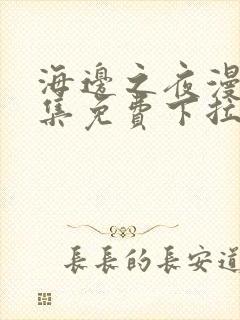 海邊之夜漫
集免費下拉
長長的長安道